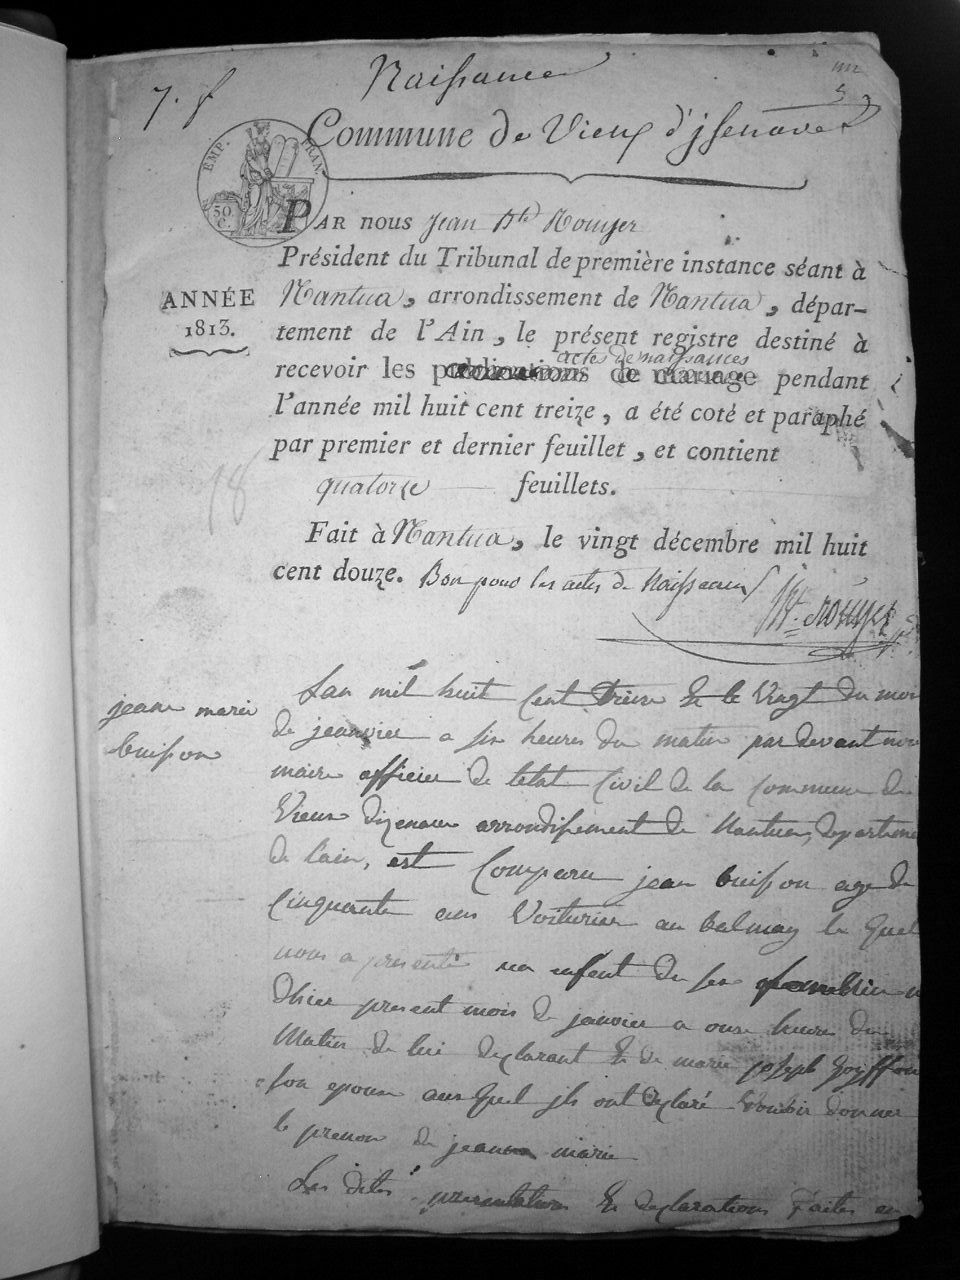 Naissance
7. f
Commune de Vieux d'jsenave
EMP. FRAN.
50 C.
PAR nous Jean Bte Rouyer
Président du Tribunal de première instance séant à
ANNÉE
1813.
Nantua, arrondissement de Nantua, dépar-
tement de l'Ain, le présent registre destiné à
actes de naissances
recevoir les publications de mariage pendant
l'année mil huit cent treize, a été coté et paraphé
par premier et dernier feuillet, et contient
quatorze feuillets.
18
Fait à Nantua, le vingt décembre mil huit
cent douze. Bon pour les actes de Naissances
Bte Rouyer
jeane marie
buisson
Lan mil huit Cent Treize & le Vingt du mois
de jeanvier a six heures du matin par devant nous
maire officier de letat Civil de la Commune de
Vieux dizenave arrondissement de Nantua, departement
de lain, est Comparu jean buisson age de
Cinquante ans Voiturier au balmay le quel
nous a presenté un enfent du sex
dhier present mois de janvier a onse heures du
Matin de lui declarant & de marie joseph Goyffon
son epouse auquel jls ont declaré Vouloir donner
le prenom de jeane marie
Les dites presentation & declarations Faites en